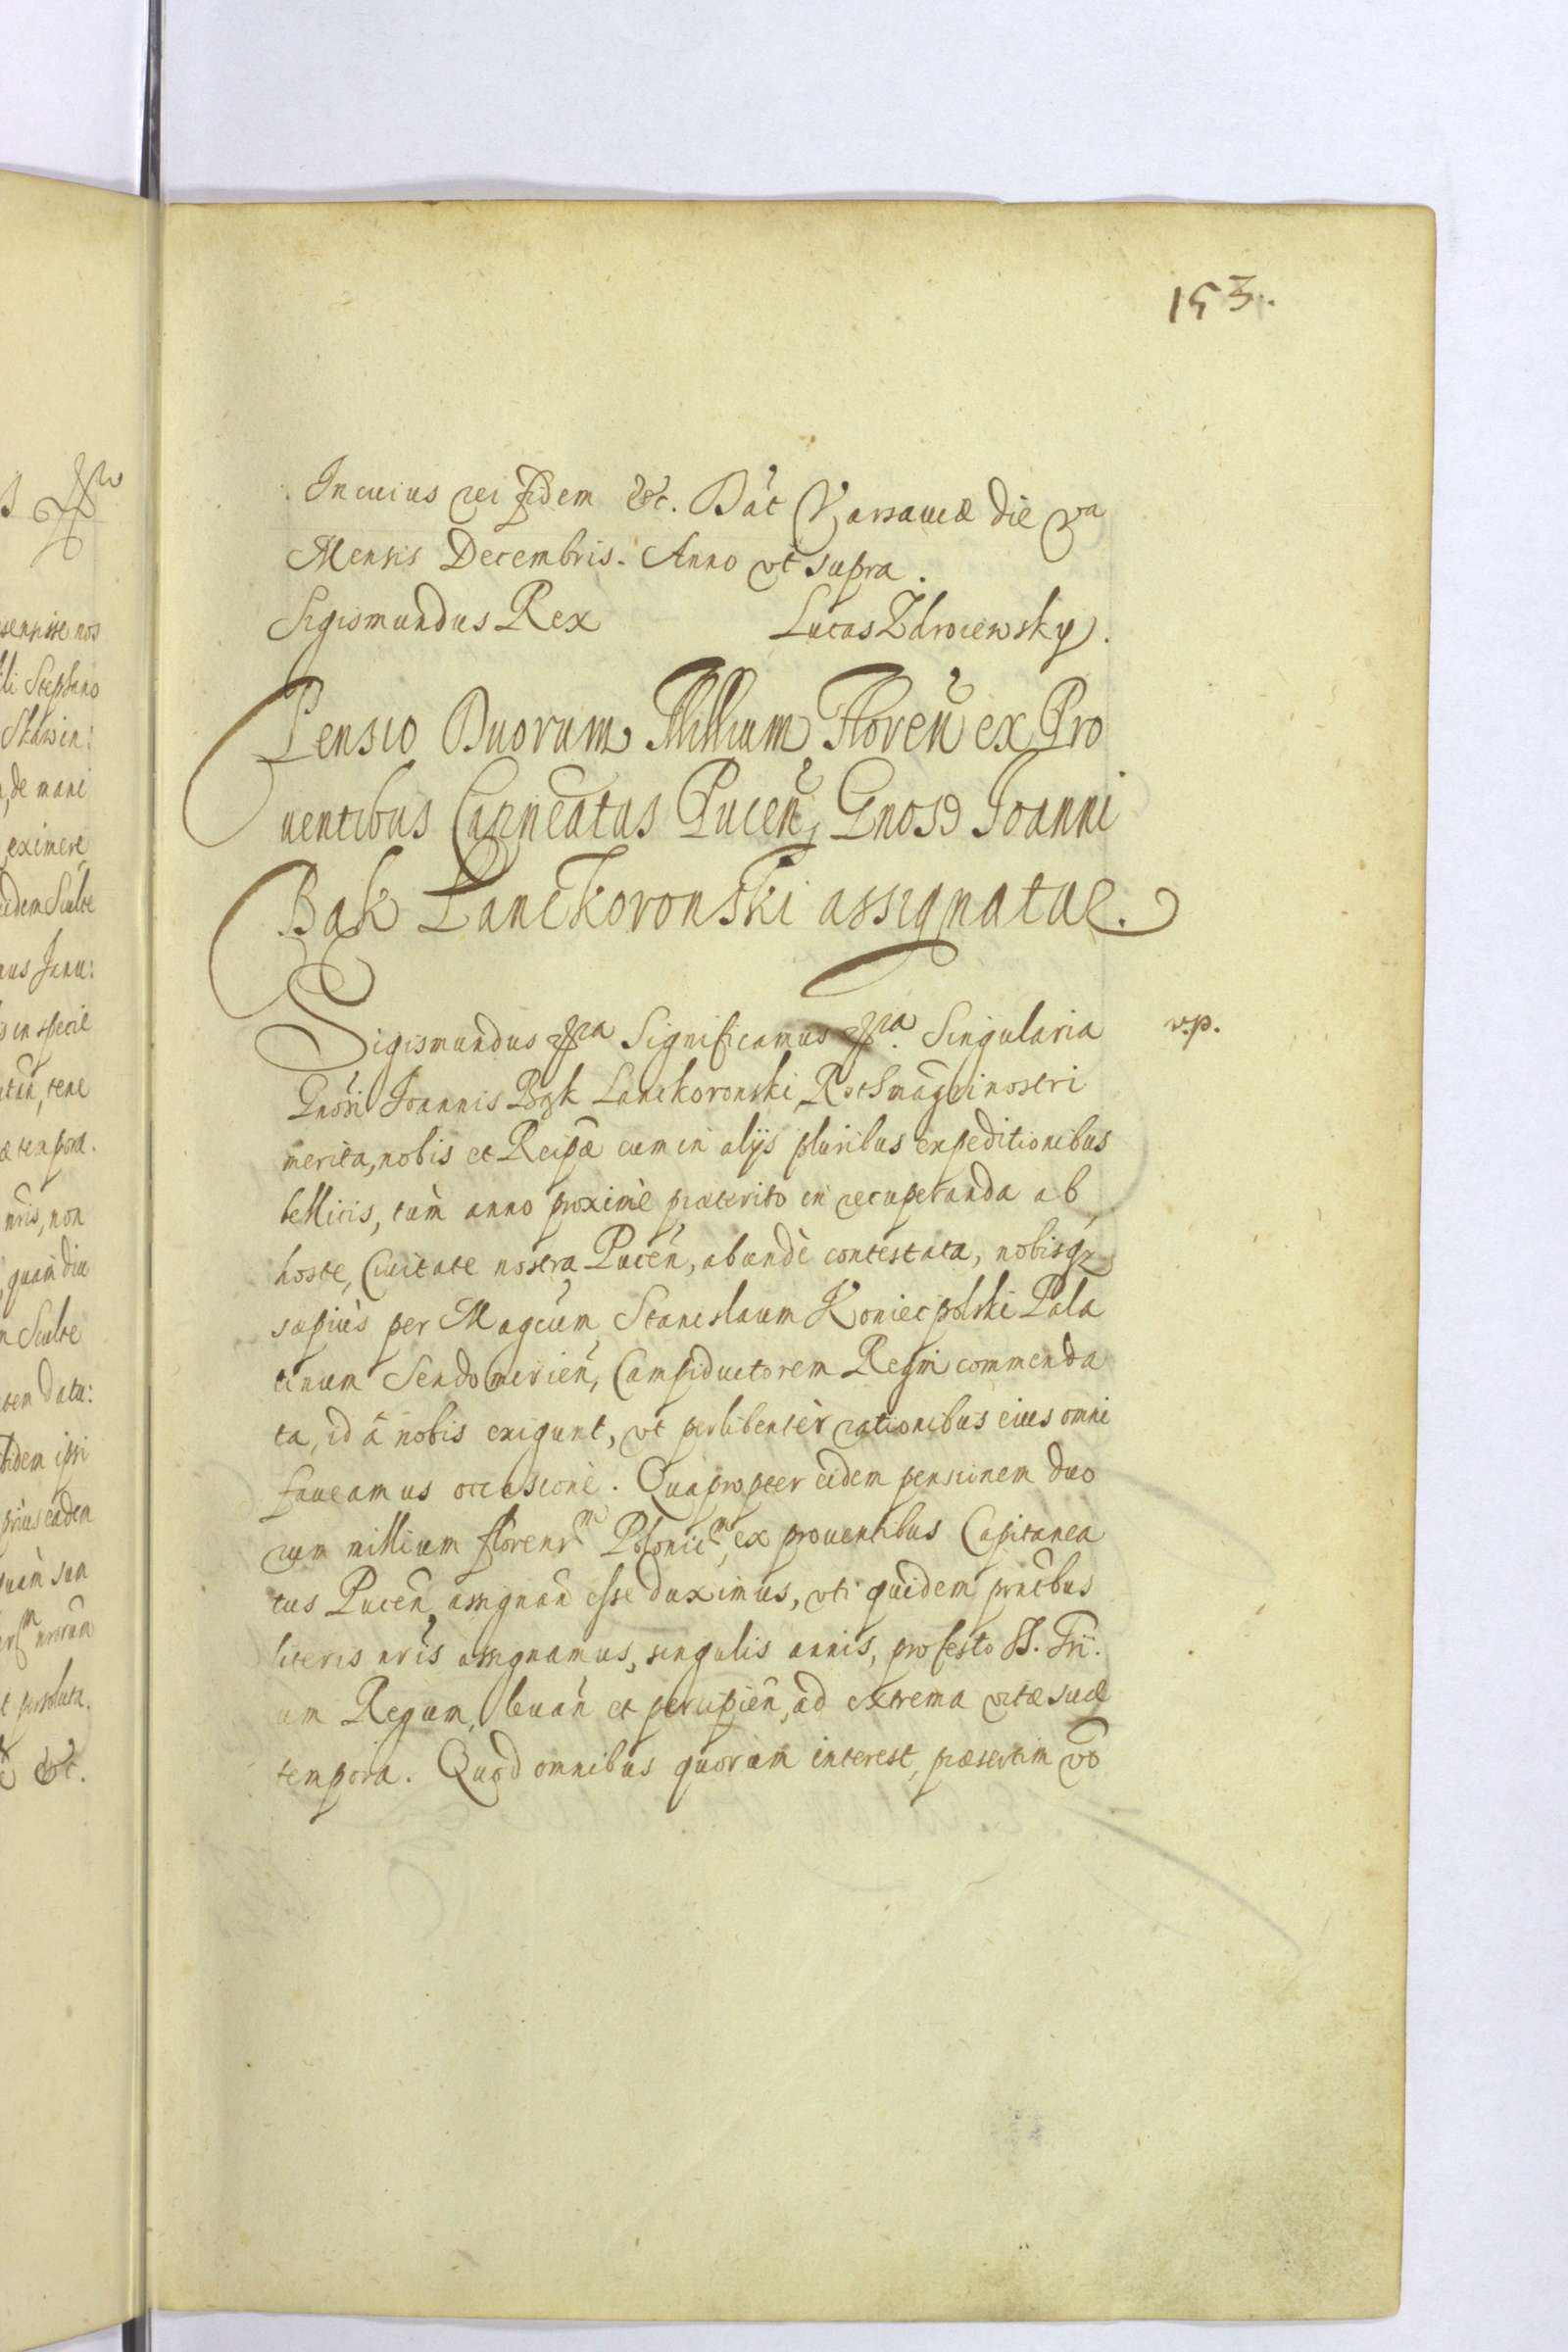 153.
In cuius rei fidem &c. Dat Varsaviæ die va
Mensis Decembris. Anno vt supra.
Sigismundus Rex Lucas Zdroiewsky.
Pensio Duorum Millium Floren ex Pro
uentibus Capneatus Pucen, Gnoso Joanni
Bąk Lanckoronski assignatae.
Sigismundus Significamus Singularia
v.p.
Gnosi Joannis Bąk Lanckoronski Rothmagri nostri
merita, nobis et Reipæ cum in alijs pluribus expeditionibus
bellicis, tum anno proximè præterito in recuperanda ab
hoste, Ciuitate nostra Pucen, abundè contestata, nobisq
sæpius per Magcum Stanislaum Koniecpolski Pala
tinum Sendomirien, Campiductorem Regni commenda
ta, id â nobis exigunt, vt perlibentèr rationibus eius omni
faueamus occasione. Quapropter eidem pensionem duo
rum millium florenrm Polonicrm, ex prouentibus Capitanea
tus Pucen, assignan esse duximus, vti quidem pntibus
literis nris assignamus, singulis annis, pro festo SS. Tri
um Regum, leuan et percipien, ad extrema vitæ suæ
tempora. Quod omnibus quorum interest, præsertim vo
senisse nos
li Stephano
Skarsin:
, de mani
eximere
idem Sculte
us Janu:
s in specie
tan, tene
æ tempora.
nris, non
, quam diu
n Sculte
tem datu:
tidem ipsi
prius eadem
quam sum
t persoluta.
&c.